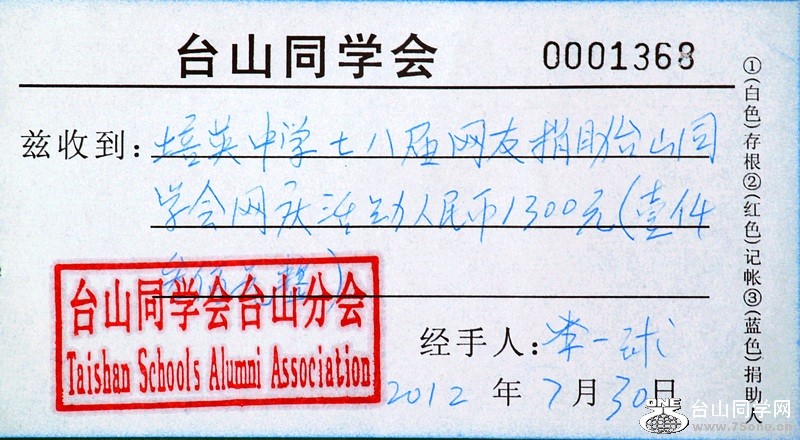 台山同学会
0001368
兹收到：培英中学七八届网友捐助台山同
学会网庆活动人民币1300元（壹仟
叁佰元整）
台山同学会台山分会
Taishan Schools Alumni Association
经手人：李一球
2012 年 7 月 30 日
①（白色）存根②（红色）记帐③（蓝色）捐助人
ONE
台山同学网
www.75one.cn